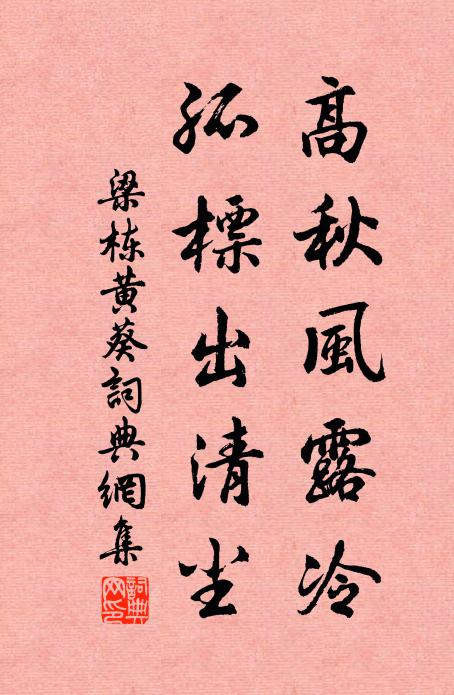 高秋風露冷
孤標出清尘
梁栋黄葵詞典網集
詞典网印